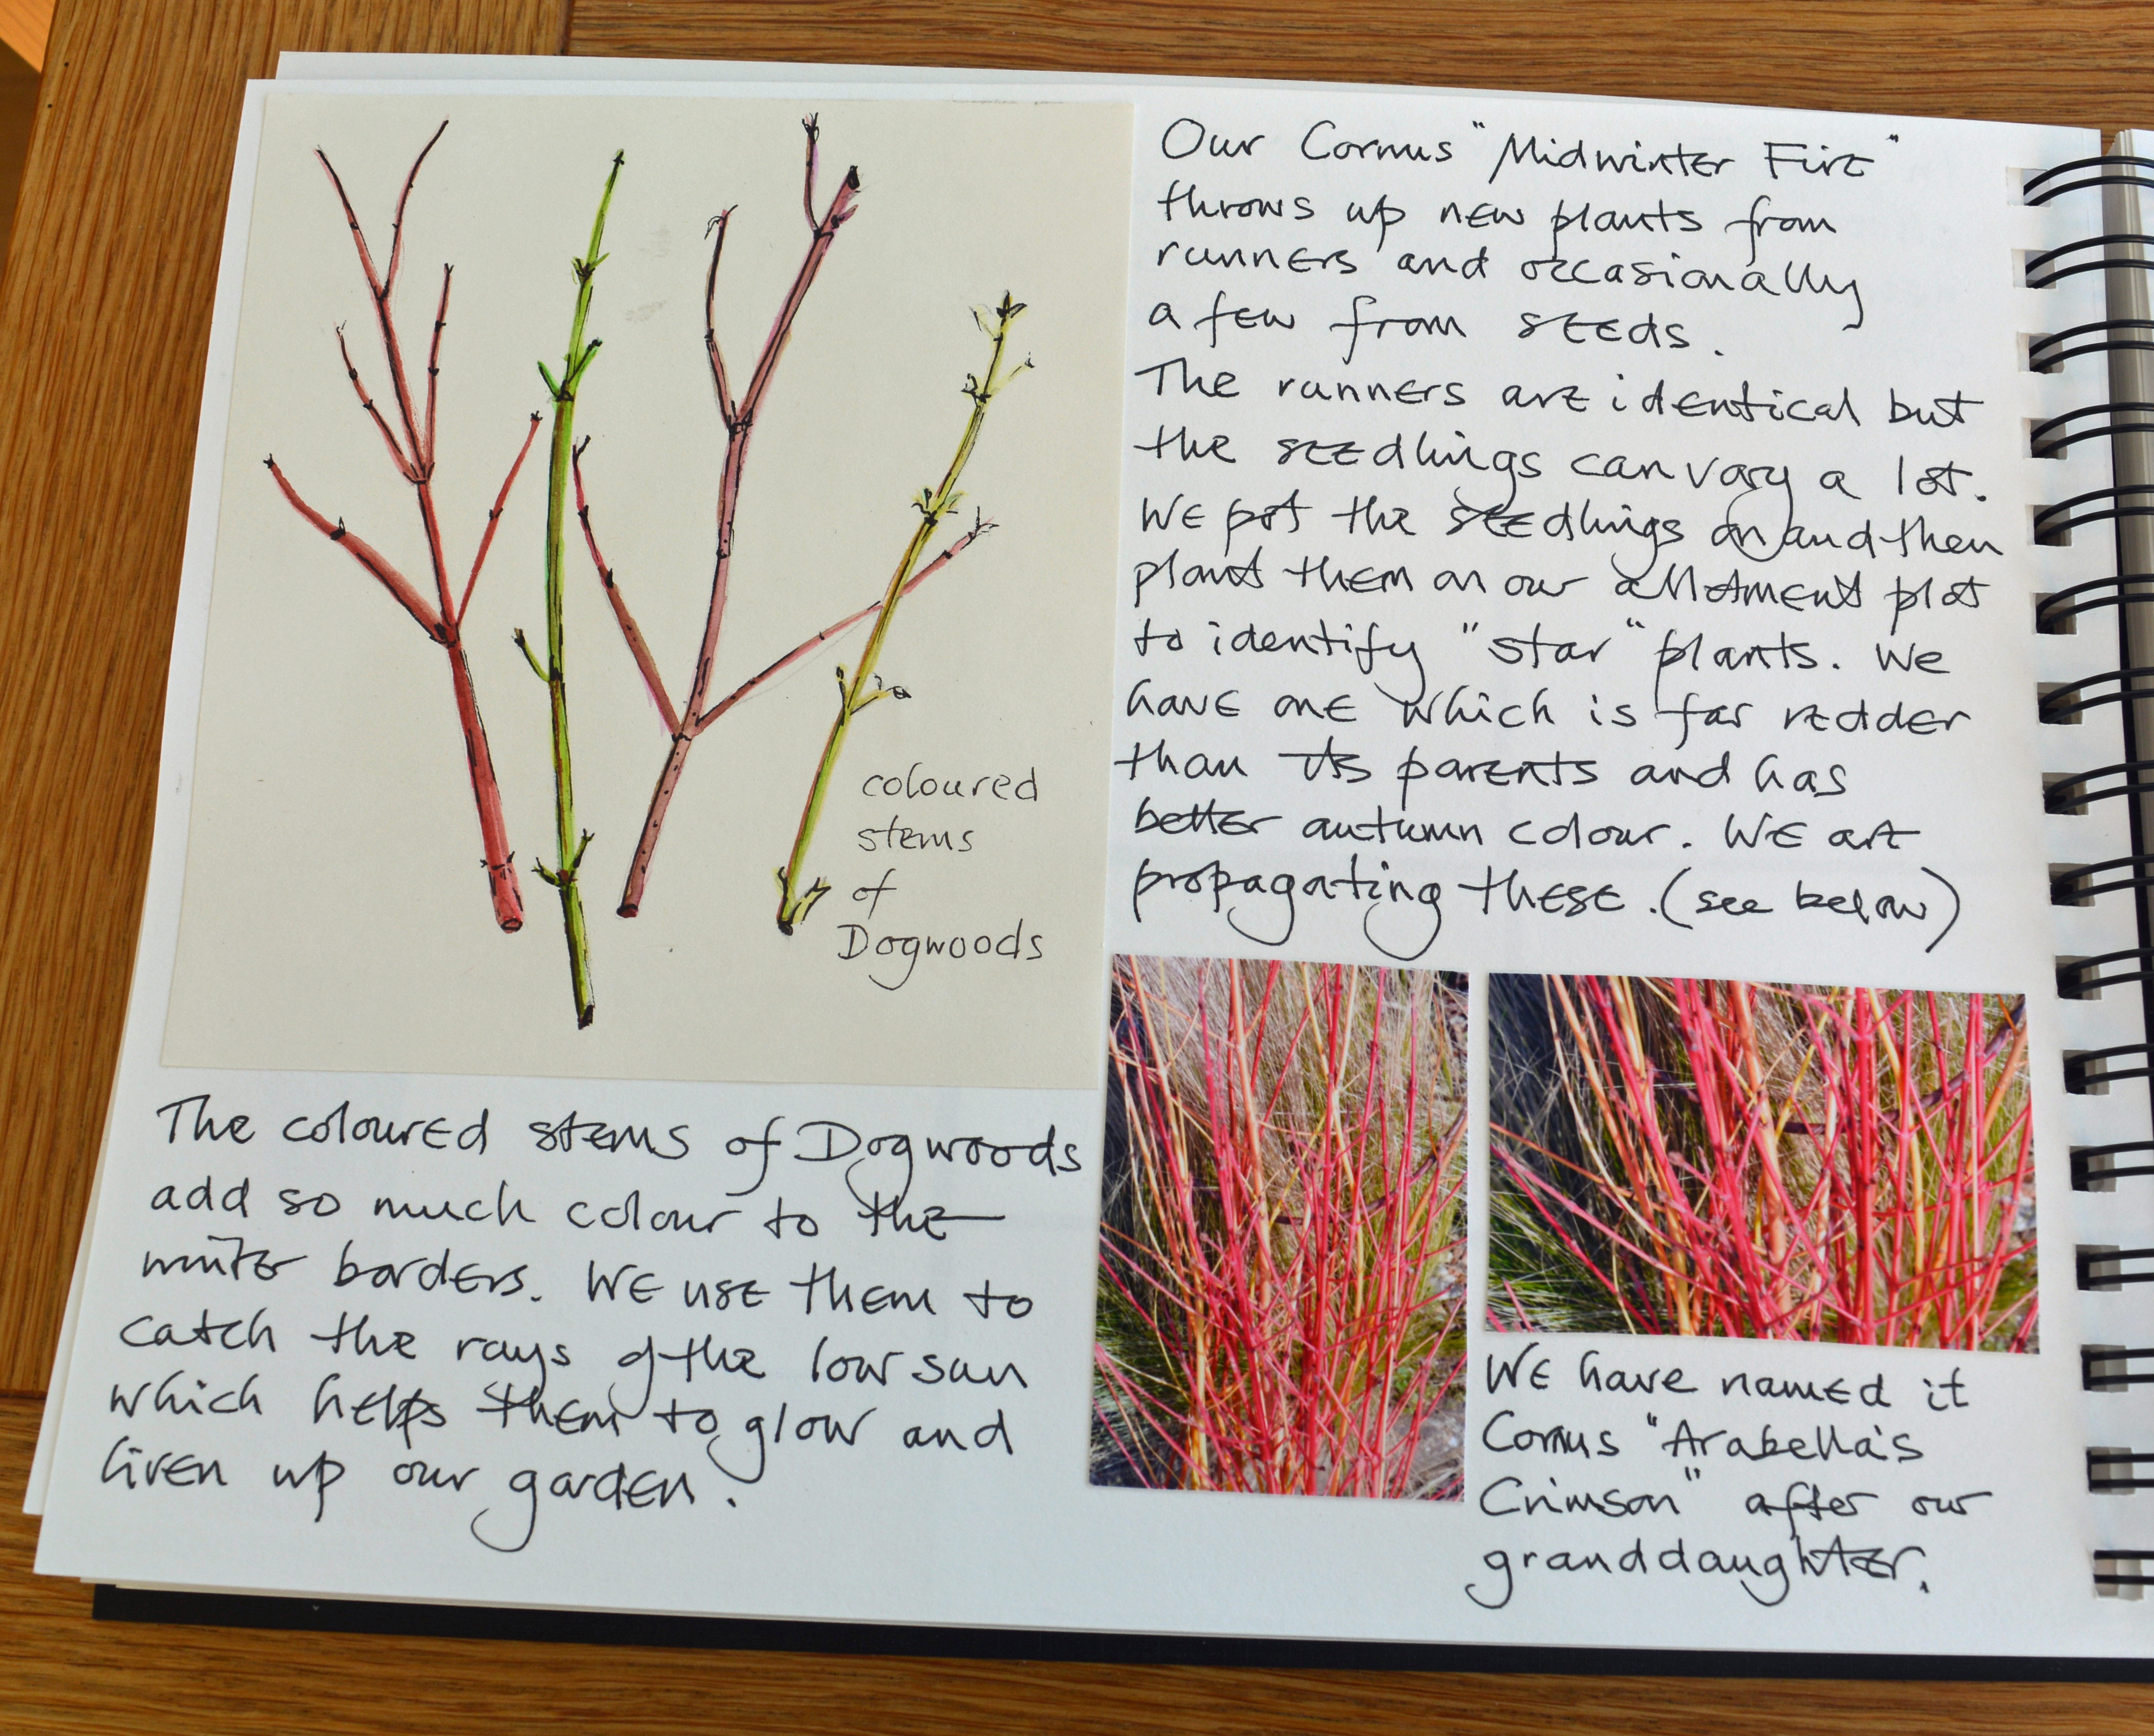 coloured
stems
of
Dogwoods
The coloured stems of Dogwoods
add so much colour to the
winter borders. We use them to
catch the rays of the low sun
which helps them to glow and
liven up our garden.
Our Cornus "Midwinter Fire"
throws up new plants from
runners and occasionally
a few from seeds.
The runners are identical but
the seedlings can vary a lot.
We pot the seedlings on and then
plant them on our allotment plot
to identify "star" plants. We
have one which is far redder
than its parents and has
better autumn colour. We are
propagating these. (see below)
We have named it
Cornus "Arabella's
Crimson" after our
granddaughter.